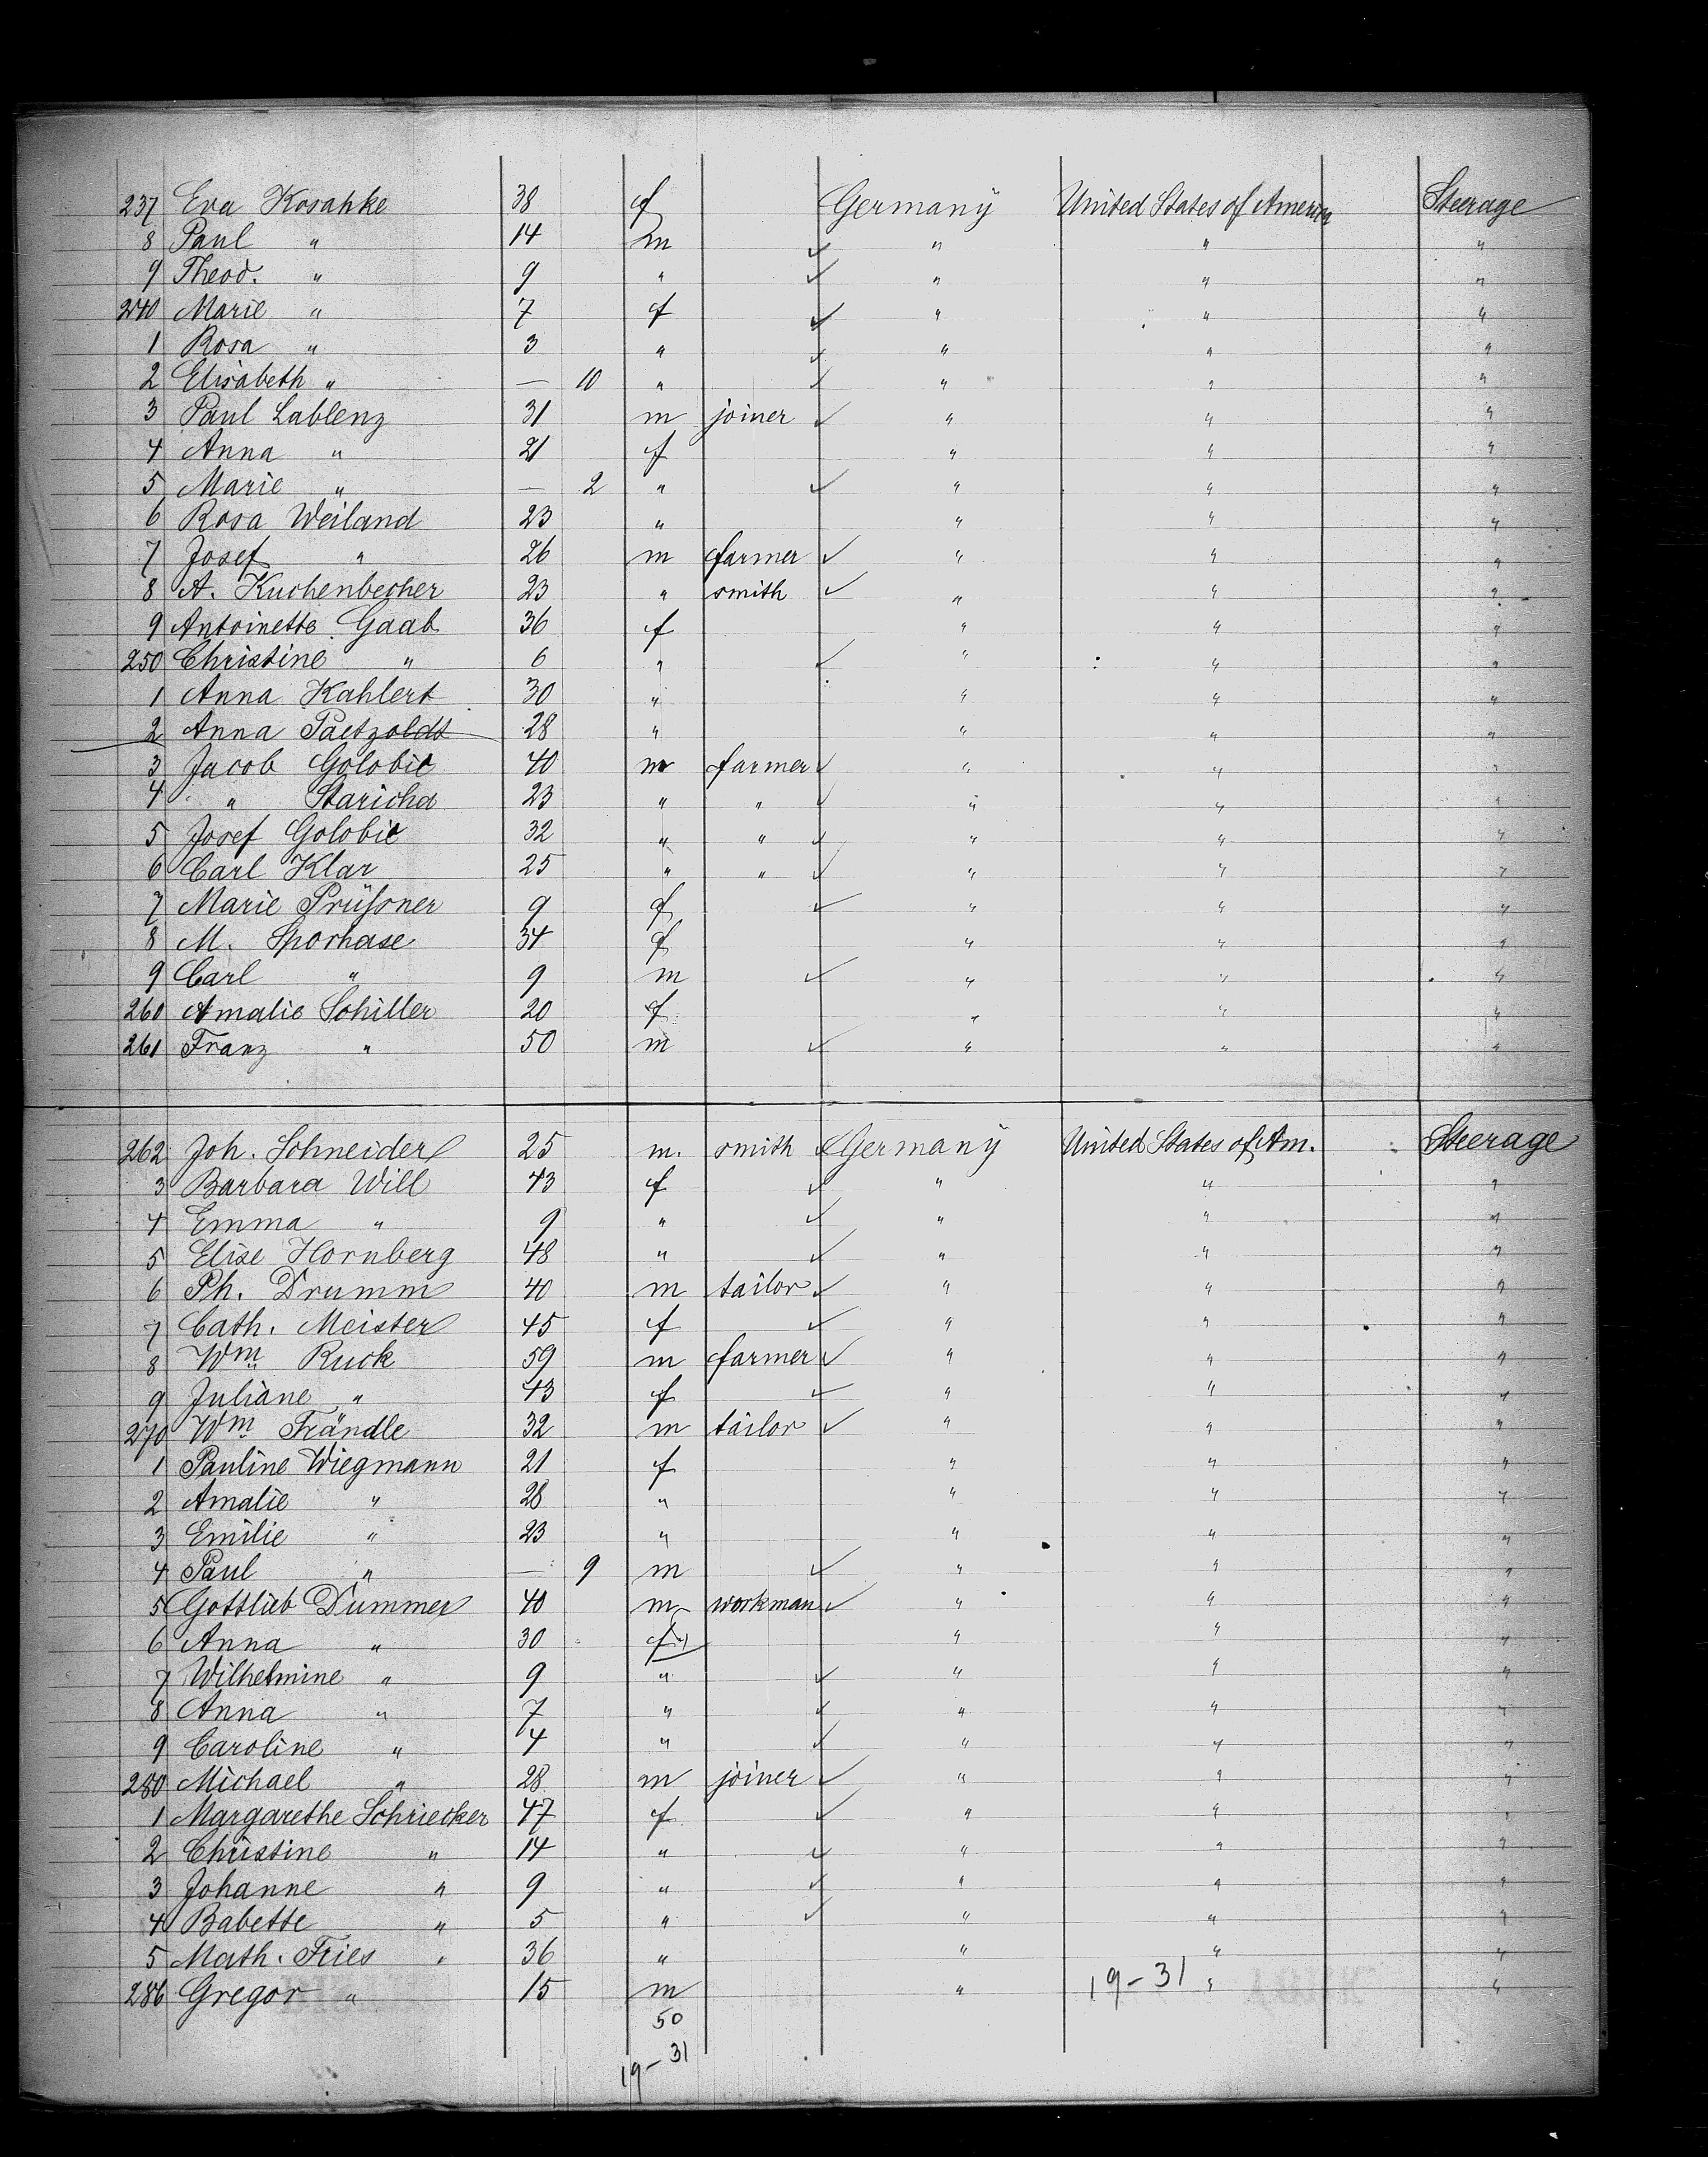 237 Eva Kosahke 38 f Germany United States of America Steerage
8 Paul " 14 m ✓ " " "
9 Theod. " 9 " ✓ " " "
240 Marie " 7 f ✓ " " "
1 Rosa " 3 " ✓ " " "
2 Elisabeth " — 10 " ✓ " " "
3 Paul Lablenz 31 m joiner ✓ " " "
4 Anna " 21 f " " "
5 Marie " — 2 " ✓ " " "
6 Rosa Weiland 23 " " " "
7 Josef " 26 m farmer ✓ " " "
8 A. Kuchenbecher 23 " smith ✓ " " "
9 Antoinette Gaab 36 f " " "
250 Christine " 6 " ✓ " " "
1 Anna Kahlert 30 " " " "
2 Anna Paetzoldt 28 " " " "
3 Jacob Golobic 40 m farmer ✓ " " "
4 " Staricha 23 " " ✓ " " "
5 Josef Golobic 32 " " ✓ " " "
6 Carl Klar 25 " " ✓ " " "
7 Marie Prüfsner 9 f ✓ " " "
8 M. Sporhase 34 f " " "
9 Carl " 9 m ✓ " " "
260 Amalie Schiller 20 f " " "
261 Franz " 50 m ✓ " " "
262 Joh. Schneider 25 m. smith ✓ Germany United States of Am. Steerage
3 Barbara Will 43 f ✓ " " "
4 Emma " 9 " ✓ " " "
5 Elise Hornberg 48 " ✓ " " "
6 Ph. Drumm 40 m tailor ✓ " " "
7 Cath. Meister 45 f ✓ " " "
8 Wm Ruck 59 m farmer ✓ " " "
9 Juliane " 43 f ✓ " " "
270 Wm Frändle 32 m tailor ✓ " " "
1 Pauline Wiegmann 21 f " " "
2 Amalie " 28 " " " "
3 Emilie " 23 " " " "
4 Paul " — 9 m ✓ " " "
5 Gottlieb Dummer 40 m workman ✓ " " "
6 Anna " 30 f " " "
7 Wilhelmine " 9 " ✓ " " "
8 Anna " 7 " ✓ " " "
9 Caroline " 4 " ✓ " " "
280 Michael " 28 m joiner ✓ " " "
1 Margarethe Schriecker 47 f ✓ " " "
2 Christine " 14 " ✓ " " "
3 Johanne " 9 " ✓ " " "
4 Babette " 5 " ✓ " " "
5 Math. Fries " 36 " " " "
286 Gregor " 15 m " 19-31 " "
50
19-31